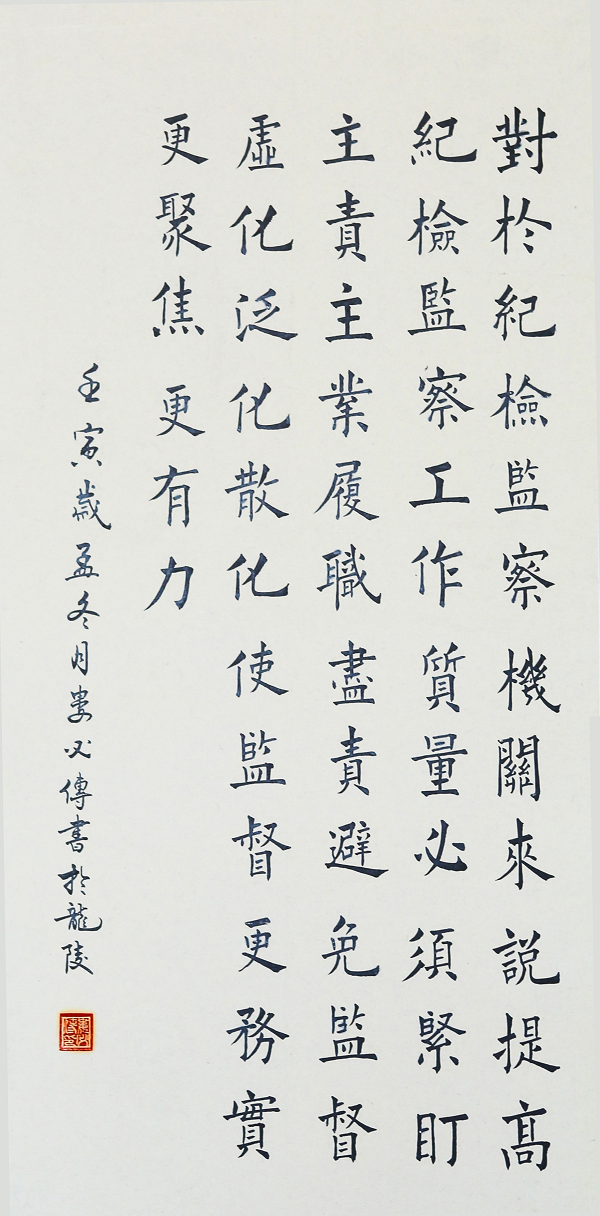 對於紀檢監察機關來説提高
紀檢監察工作質量必須緊盯
主責主業履職盡責避免監督
虛化泛化散化使監督更務實
更聚焦更有力
壬寅歲孟冬月婁必傳書於龍陵